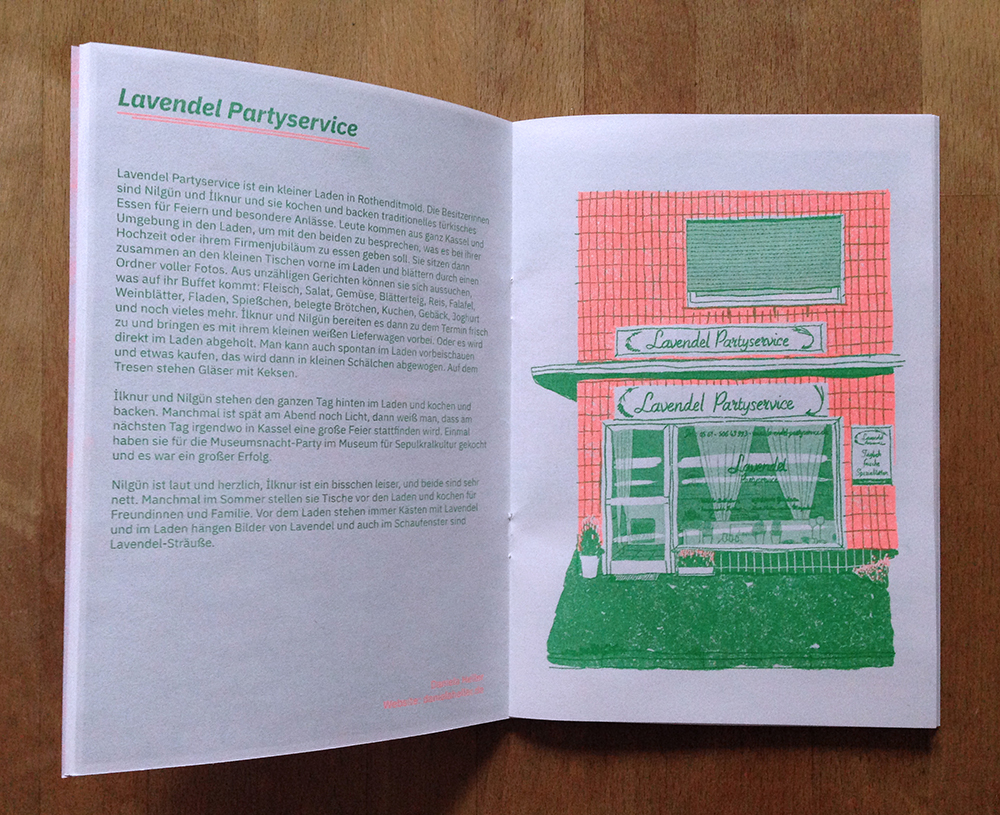 Lavendel Partyservice
Lavendel Partyservice ist ein kleiner Laden in Rothenditmold. Die Besitzerinnen
sind Nilgün und İlknur und sie kochen und backen traditionelles türkisches
Essen für Feiern und besondere Anlässe. Leute kommen aus ganz Kassel und
Umgebung in den Laden, um mit den beiden zu besprechen, was es bei ihrer
Hochzeit oder ihrem Firmenjubiläum zu essen geben soll. Sie sitzen dann
zusammen an den kleinen Tischen vorne im Laden und blättern durch einen
Ordner voller Fotos. Aus unzähligen Gerichten können sie sich aussuchen,
was auf ihr Buffet kommt: Fleisch, Salat, Gemüse, Blätterteig, Reis, Falafel,
Weinblätter, Fladen, Spießchen, belegte Brötchen, Kuchen, Gebäck, Joghurt
und noch vieles mehr. İlknur und Nilgün bereiten es dann zu dem Termin frisch
zu und bringen es mit ihrem kleinen weißen Lieferwagen vorbei. Oder es wird
direkt im Laden abgeholt. Man kann auch spontan im Laden vorbeischauen
und etwas kaufen, das wird dann in kleinen Schälchen abgewogen. Auf dem
Tresen stehen Gläser mit Keksen.
İlknur und Nilgün stehen den ganzen Tag hinten im Laden und kochen und
backen. Manchmal ist spät am Abend noch Licht, dann weiß man, dass am
nächsten Tag irgendwo in Kassel eine große Feier stattfinden wird. Einmal
haben sie für die Museumsnacht-Party im Museum für Sepulkralkultur gekocht
und es war ein großer Erfolg.
Nilgün ist laut und herzlich, İlknur ist ein bisschen leiser, und beide sind sehr
nett. Manchmal im Sommer stellen sie Tische vor den Laden und kochen für
Freundinnen und Familie. Vor dem Laden stehen immer Kästen mit Lavendel
und im Laden hängen Bilder von Lavendel und auch im Schaufenster sind
Lavendel-Sträuße.
Lavendel Partyservice
Lavendel Partyservice
Lavendel
Täglich
frische
Spezialitäten